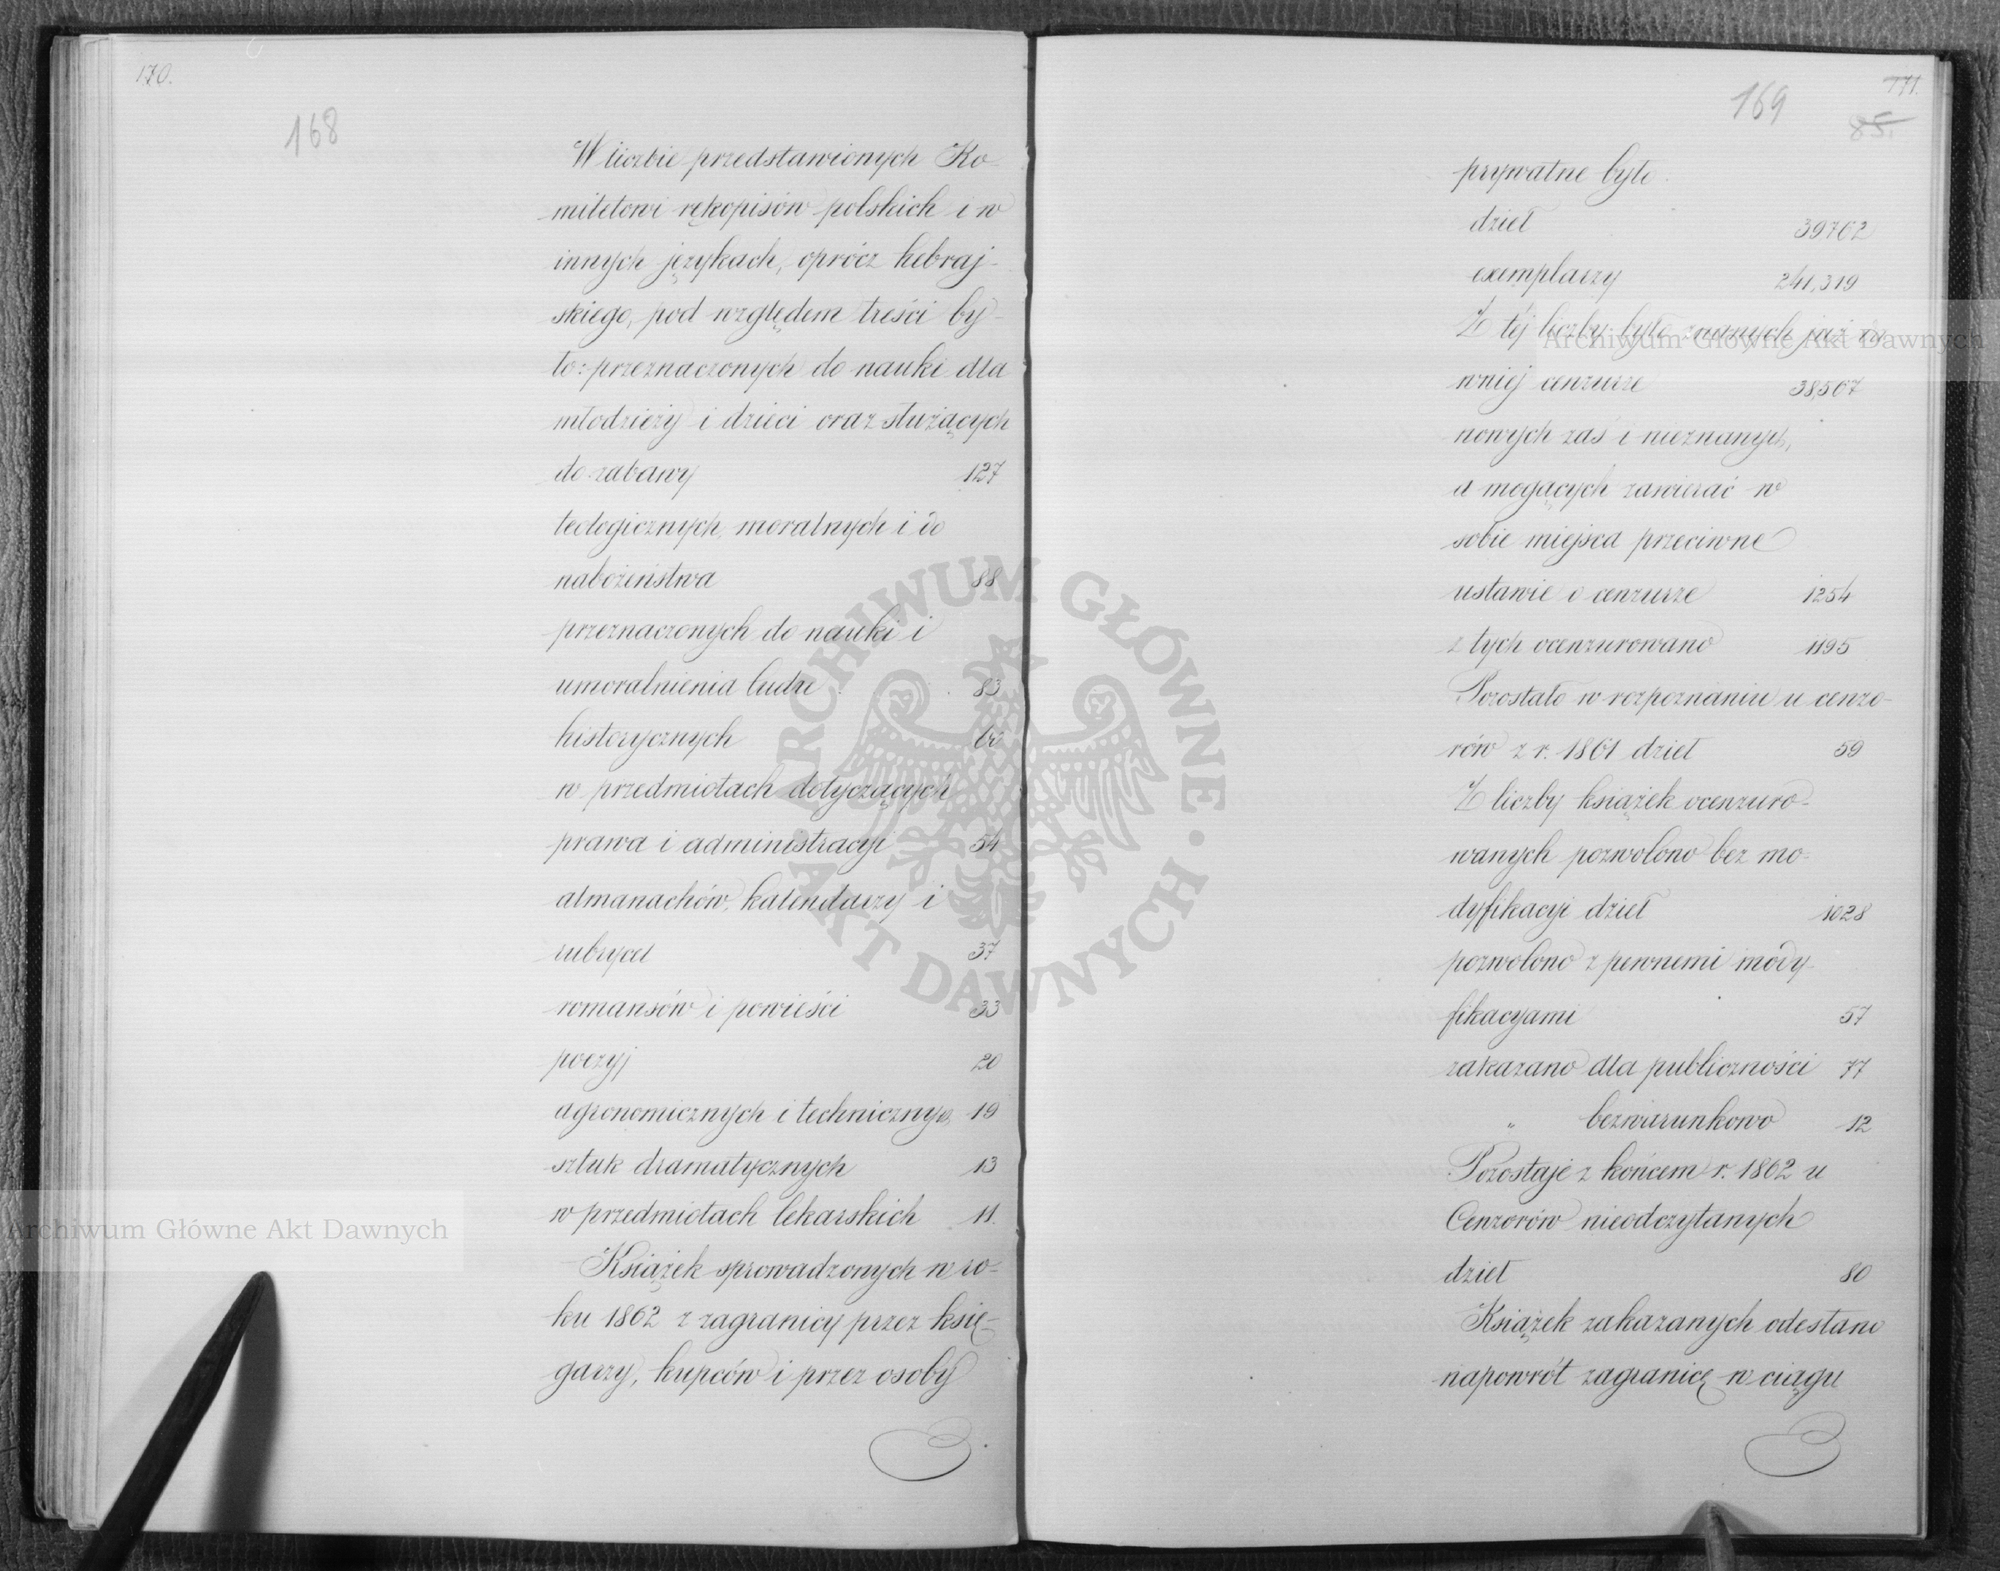 170.
168
W liczbie przedstawionych Ko-
mitetowi rękopisów polskich i w
innych językach, oprócz hebraj-
skiego, pod względem treści by-
ło: przeznaczonych do nauki dla
młodzieży i dzieci oraz służących
do zabawy 127
teologicznych, moralnych i do
nabożeństwa 88
przeznaczonych do nauki i
umoralnienia ludu 83
historycznych
w przedmiotach dotyczących
prawa i administracyi 54
almanachów, kalendarzy i
rubrycel 37
romansów i powieści 33
poezyj 20
agronomicznych i technicznych 19
sztuk dramatycznych 13
w przedmiotach lekarskich 11.
Książek sprowadzonych w ro-
ku 1862 z zagranicy przez księ-
garzy, kupców i przez osoby
171.
169
85.
prywatne było
dzieł 39762
exemplarzy 241,319
Z tej liczby było znanych już da
wniej cenzurze 38,507
nowych zaś i nieznanych,
a mogących zawierać w
sobie miejsca przeciwne
ustawie o cenzurze 1254
z tych ocenzurowano 1195
Pozostało w rozpoznaniu u cenzo-
rów z r. 1861 dzieł 59
Z liczby książek ocenzuro-
wanych pozwolono bez mo-
dyfikacyi dzieł 1028
pozwolono z pewnemi mody-
fikacyami 57
zakazano dla publiczności 77
" bezwarunkowo 12
Pozostaje z końcem r. 1862 u
Cenzorów nieodczytanych
dzieł 80
Książek zakazanych odesłano
napowrót zagranicę w ciągu
Archiwum Główne Akt Dawnych
Archiwum Główne Akt Dawnych
ARCHIWUM GŁÓWNE · AKT DAWNYCH ·